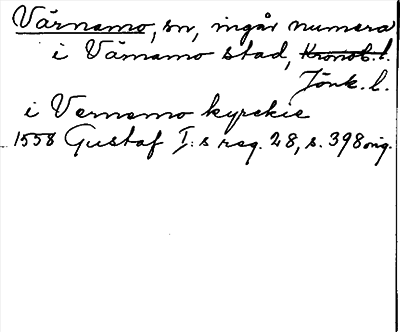 Värnamo, sn, ingår numera
i Värnamo stad, Kronob. l.
Jönk. l.
i Vernamo kyrckie
1558 Gustaf I:s reg. 28, s. 398 orig.